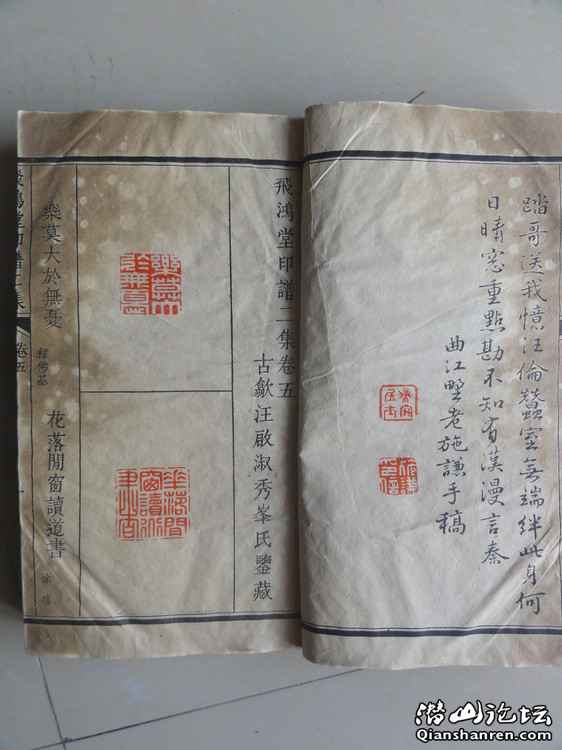 踏哥送我憶汪倫蠶室無端絆此身何
日晴窓重點勘不知有漢漫言秦
曲江埜老施謙手稿
飛鴻堂印譜二集卷五
古歙汪啟淑秀峯氏鑒藏
樂莫大於無憂
花落閒窗讀道書
樂莫大於無憂
花落閒窗讀道書
飛鴻堂印譜二集
卷五
潜山论坛
Qianshanren.com